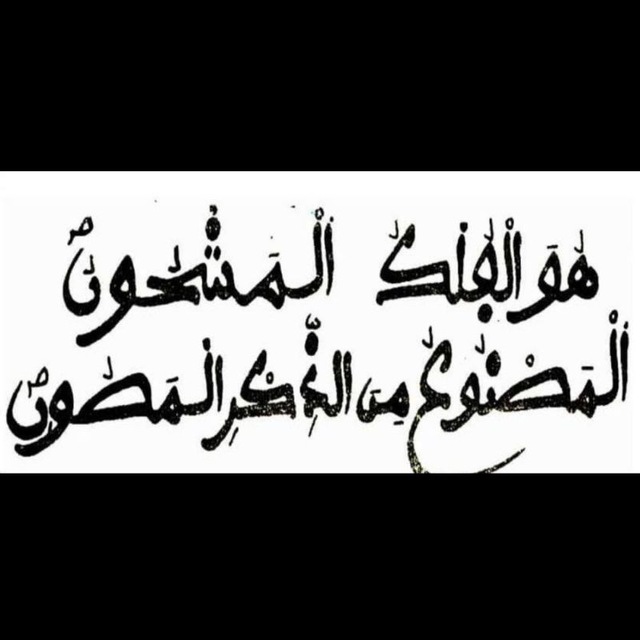 هُوَ الْفُلْكُ الْمَشْحُونُ
الْمَصْنُوعُ مِنَ الذِّكْرِ الْمَصُونِ